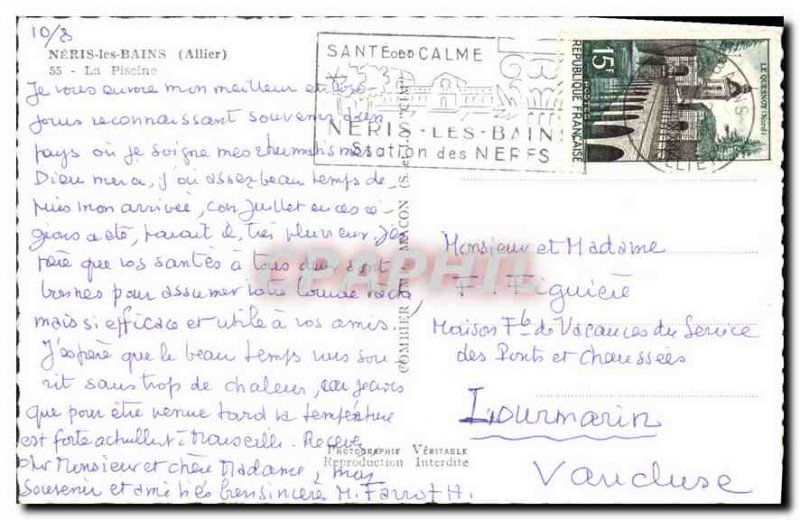 10/8
NÉRIS-les-BAINS (Allier)
55 - La Piscine
Je vous envoie mon meilleur et tou-
jours reconnaissant souvenir d'un
pays où je soigne mes rhumatismes
Dieu merci, j'ai assez beau temps de-
puis mon arrivée, car Juillet en ces ré-
gions a été, parait il, très pluvieux. J'es-
père que vos santés à tous deux sont
bonnes pour assumer votre lourde tache
mais si efficace et utile à vos amis.
J'espère que le beau temps vous sou
rit sans trop de chaleur, car je crois
que pour être venue tard la température
est forte actuellemt à Marseille. Recevez
cher Monsieur et chère Madame, mon
souvenir et amitiés bien sincères M. Farrot H.
SANTÉ CALME
NERIS - LES - BAINS
Station des NERFS
15F
POSTES
RÉPUBLIQUE FRANÇAISE
LE QUESNOY (Nord)
COMBIER IMP. MACON (S.-et-L.)
CPAPHIL
Monsieur et Madame
F. Figuière
Maison Fle de Vacances du Service
des Ponts et Chaussées
Lourmarin
Vaucluse
PHOTOGRAPHIE VÉRITABLE
Reproduction Interdite